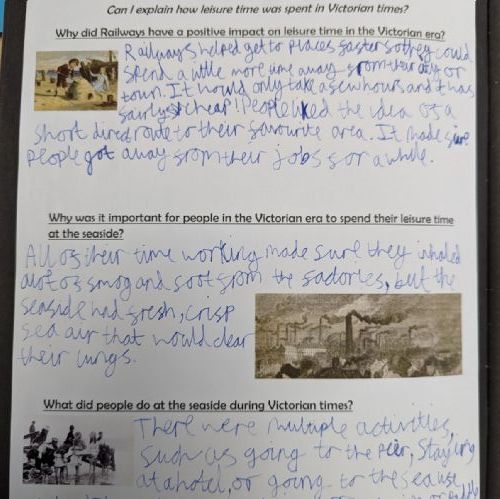 Can I explain how leisure time was spent in Victorian times?
Why did Railways have a positive impact on leisure time in the Victorian era?
Railways helped get to places faster so they could
spend a little more time away from their city or
town. It would only take a few hours and it was
fairly cheap! People liked the idea of a
short direct route to their favourite area. It made sure
people got away from their jobs for a while.
Why was it important for people in the Victorian era to spend their leisure time
at the seaside?
All of their time working made sure they inhaled
alot of smog and soot from the factories, but the
seaside had fresh, crisp
sea air that would clear
their lungs.
What did people do at the seaside during Victorian times?
There were multiple activities,
such as going to the Peir, staying
at a hotel, or going to the